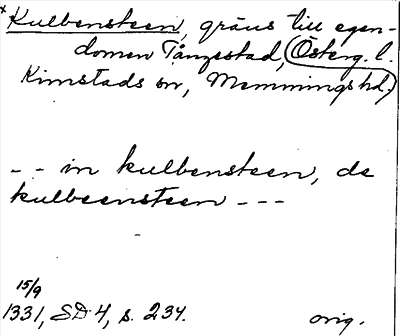 *Kulbensteen, gräns till egen-
domen Tångestad, (Österg. l.
Kimstads sn, Memmings hd.)
- - in kulbensteen, de
kulbeensteen - - -
15/9
1331, SD 4, s. 234.
orig.